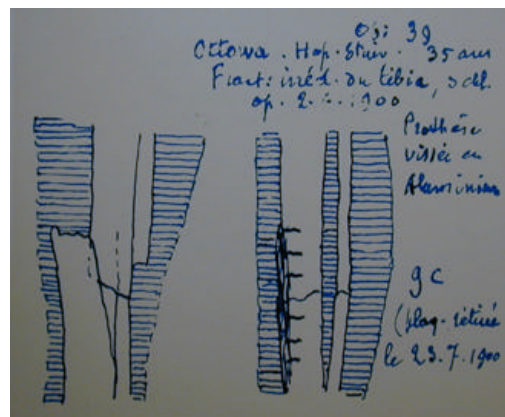 Obs: 39
Ottowa. Hop. Stuiv. 35 ans
Fract: irréd. du tibia,
op. 2 1900
Prothèse
vissée en
Aluminium
g c
(plaq. retirée
le 23.7.1900